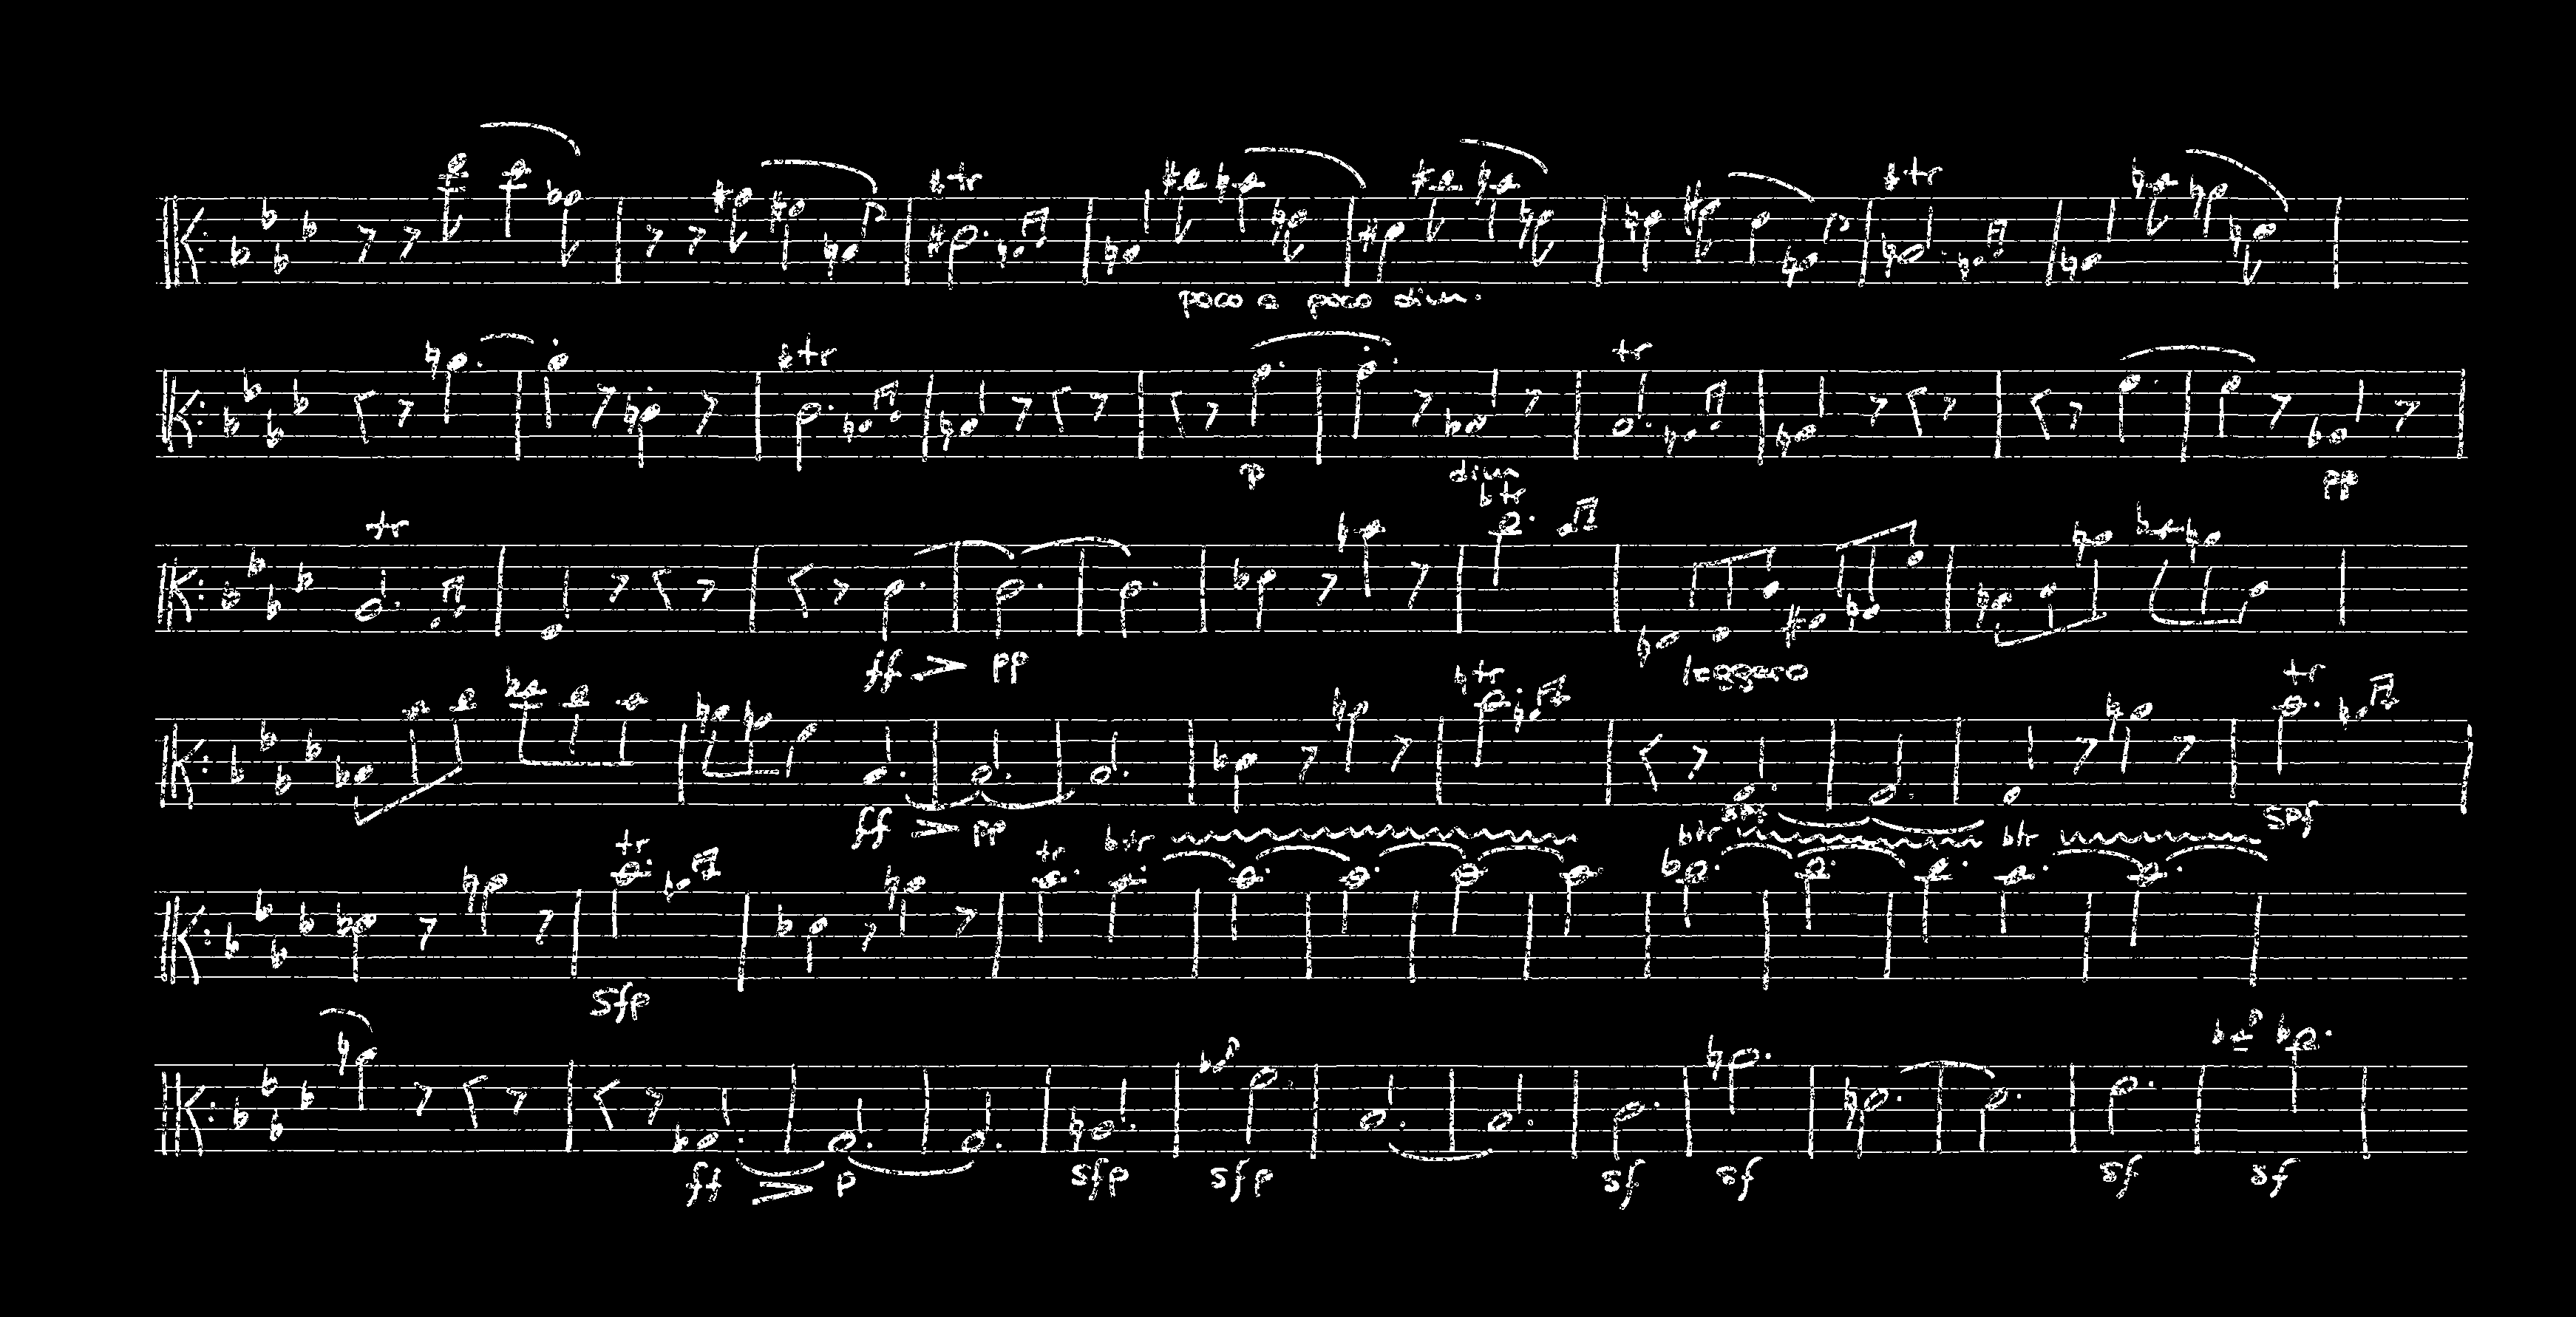 tr tr
poco a poco dim.
tr tr
p dim pp
tr
tr
ff pp
leggero
tr tr
ff pp spf spf
tr tr tr tr tr
sfp
ff p sfp sfp sf sf sf sf